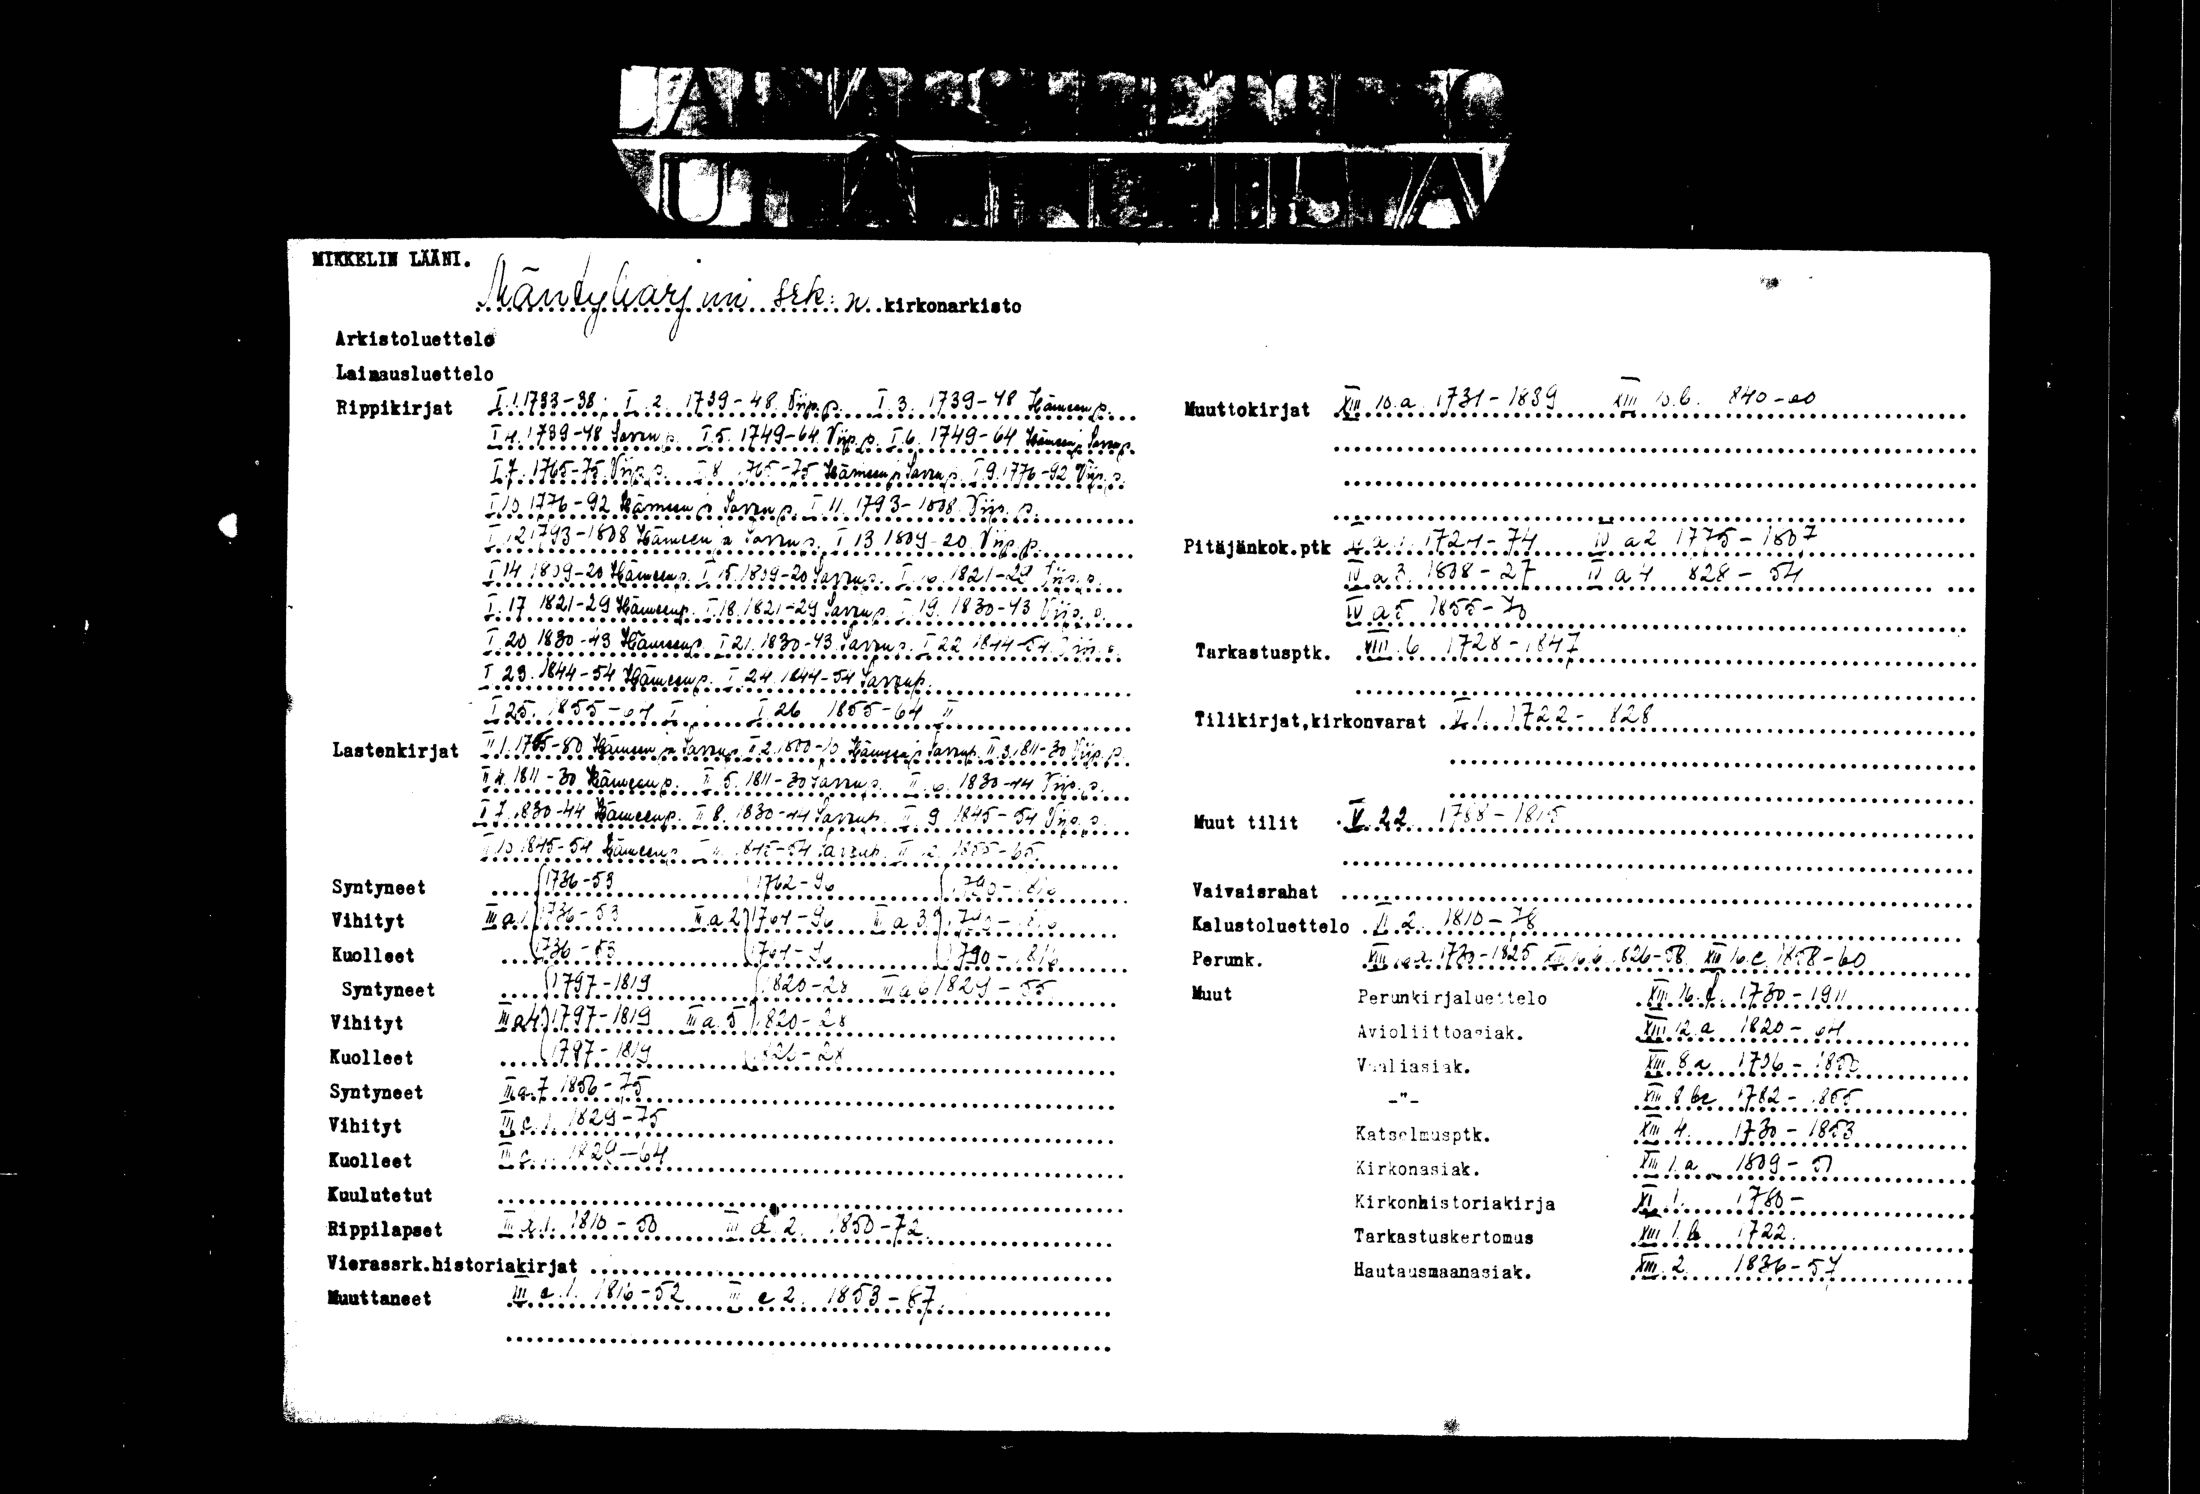 MIKKELIN LÄÄNI.
Mäntyharjun srk:n kirkonarkisto
Arkistoluettelo
Lainausluettelo
Rippikirjat I.1. 1733-38; I.2. 1739-48 Viip.p. I.3. 1739-48 Hämeen p.
I.4. 1739-48 Savon p. I.5. 1749-64 Viip.p. I.6. 1749-64 Hämeen ja Savon p.
I.7. 1765-75 Viip.p. I.8. 1765-75 Hämeen ja Savon p. I.9. 1776-92 Viip.p.
I.10. 1776-92 Hämeen ja Savon p. I.11. 1793-1808 Viip.p.
I.12. 1793-1808 Hämeen ja Savon p. I.13 1809-20 Viip.p.
I.14. 1809-20 Hämeen p. I.15. 1809-20 Savon p. I.16. 1821-29 Viip.p.
I.17 1821-29 Hämeen p. I.18. 1821-29 Savon p. I.19. 1830-43 Viip.p.
I.20 1830-43 Hämeen p. I.21. 1830-43 Savon p. I.22 1844-54 Viip.p.
I.23. 1844-54 Hämeen p. I.24. 1844-54 Savon p.
I.25. 1855-64 I I.26 1855-64 II
Lastenkirjat II.1. 1765-80 Hämeen ja Savon p. II.2. 1800-10 Hämeen ja Savon p. II.3. 1811-30 Viip.p.
II.4. 1811-30 Hämeen p. II.5. 1811-30 Savon p. II.6. 1830-44 Viip.p.
II.7. 1830-44 Hämeen p. II.8. 1830-44 Savon p. II.9 1845-54 Viip.p.
II.10. 1845-54 Hämeen p. II.11. 1845-54 Savon p. II.12. 1855-65.
Syntyneet 1736-53 1762-96 1790-1816
Vihityt III a.1. 1736-53 III a 2 1764-96 III a 3. 1790-1816
Kuolleet 1736-53 1764-96 1790-1816
Syntyneet 1797-1819 1820-28 III a 6 1829-55
Vihityt III a 4. 1797-1819 III a.5 1820-28
Kuolleet 1797-1819 1820-28
Syntyneet III a.7. 1856-75
Vihityt III c.1. 1829-75
Kuolleet 1829-64
Kuulutetut
Rippilapset 1.1810-50 III d 2. 1850-72.
Vierassrk.historiakirjat
Muuttaneet III e.1. 1816-52 III e 2. 1853-87.
Muuttokirjat XIII 10.a. 1731-1839 XIII 10.b. 1840-60
Pitäjänkok.ptk IV a.1. 1724-74 IV a 2 1775-1807
IV a 3. 1808-27 IV a 4 1828-54
IV a 5 1855-70
Tarkastusptk. VIII.6. 1728-1847
Tilikirjat,kirkonvarat V.1. 1722-1828
Muut tilit V.22 1788-1815
Vaivaisrahat
Kalustoluettelo 2. 1810-78
Perunk. XIII 16.a. 1730-1825 XIII 16.b. 1826-58. XIII 16.c. 1858-60
Muut Perunkirjaluettelo XIII 16.d. 1730-1911
Avioliittoasiak. XIII 12.a 1820-64
Vaaliasiak. XIII 8 a 1736-1850
-"- XIII 8 bc 1782-1855
Katselmusptk. XIII 4. 1730-1853
Kirkonasiak. XIII 1.a 1809-51
Kirkonhistoriakirja XI.1. 1780-
Tarkastuskertomus XIII 1.b 1722.
Hautausmaanasiak. XIII.2. 1836-57